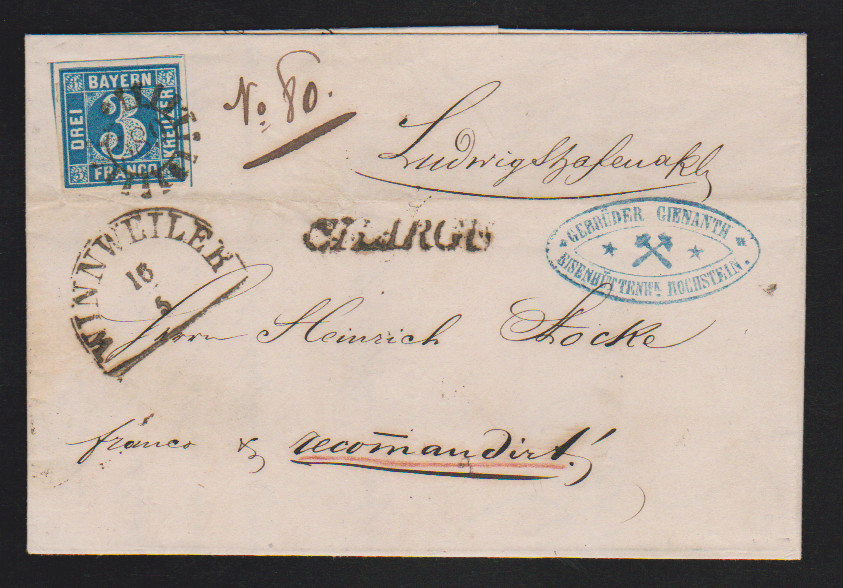 BAYERN
DREI
3
KREUZER
FRANCO
No 80.
Ludwigshafen a/Rh
WINNWEILER
16
5
CHARGÉ
GEBRÜDER GIENANTH
EISENHÜTTENWK. HOCHSTEIN.
Herrn Heinrich Stocke
franco & recom̄andirt!